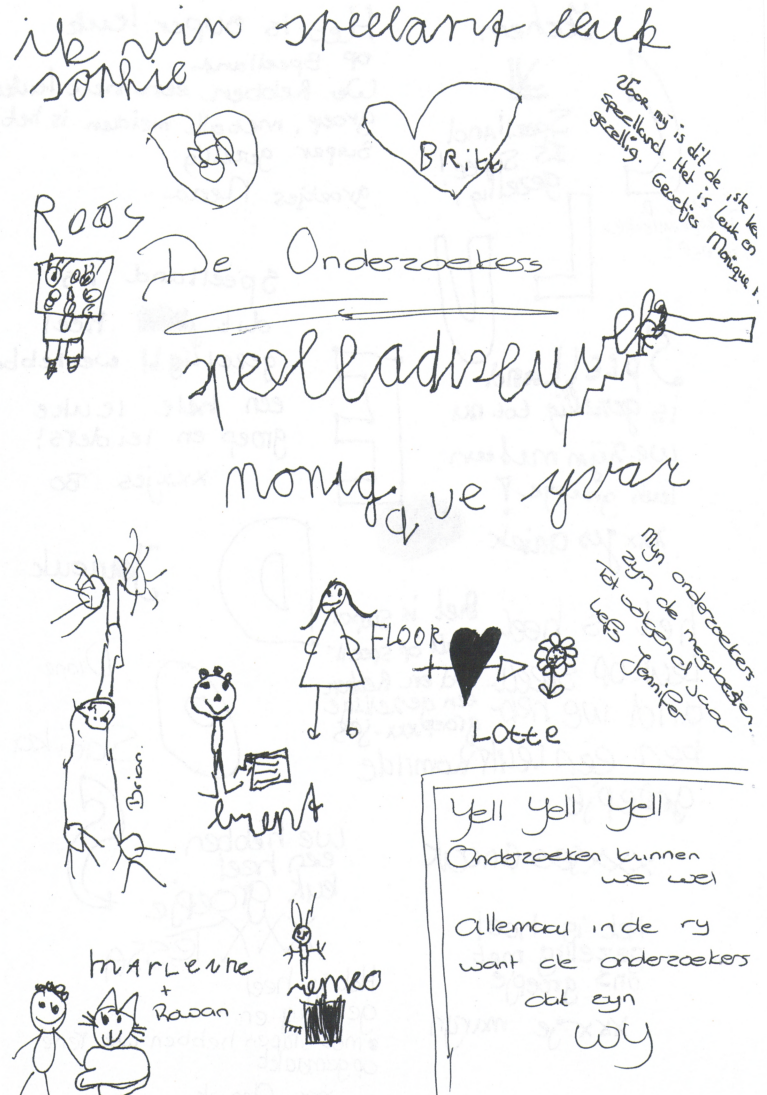 ik vin speelant leuk
sophie
Britt
Voor mij is dit de 1ste keer
speelland. Het is leuk en
gezellig. Groetjes
Monique
Roos
De Onderzoekers
moniq ve yvar
Mijn onderzoekers
zijn de megabesten..
tot volgend jaar
liefs Jennifer
FLOOR
+
LOTTE
Brian.
Yell Yell Yell
Onderzoeken kunnen
we wel
allemaal in de ry
want de onderzoekers
dat zyn
wy
MARLENNE
+
Rowan
remco